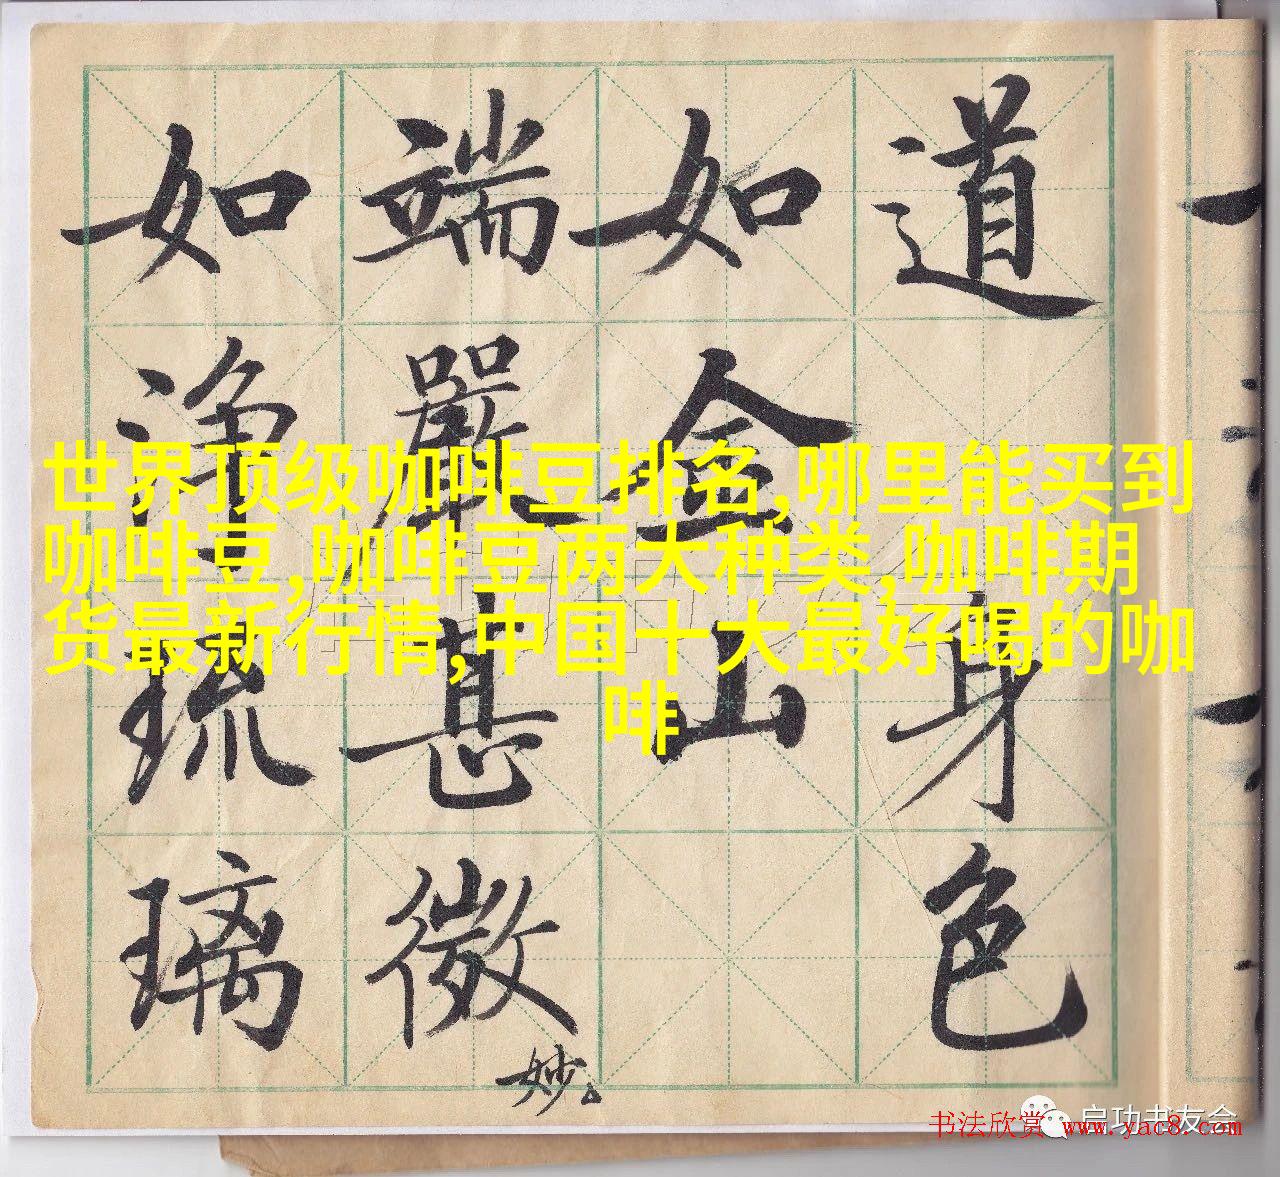 道身色
如金山
端嚴甚微妙。
如淨琉璃
世界顶级咖啡豆排名,哪里能买到
咖啡豆,咖啡豆两大种类,咖啡期
货最新行情,中国十大最好喝的咖
啡
启功书友会
书法欣赏 www.yac8.com